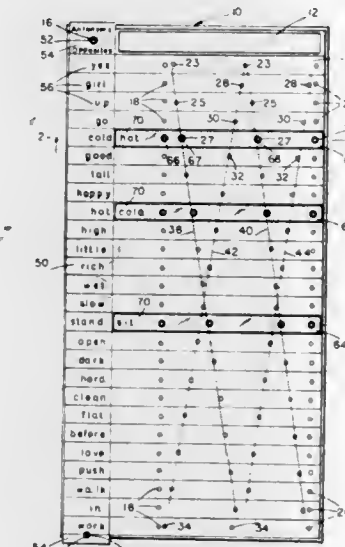 16
10
12
Antonyms
52
54
Opposites
yes 23 23
56 girl 28 28
up 18 25 25
go 70 30 30
2 cold hot 27 27
good 66 67 68
tall 32 32
happy 70
hot cold
high 38 40
little 42 44
rich
50
wet
slow
70
stand sit
64
open
dark
hard
clean
flat
before
love
push
walk
in 18
work 34 34